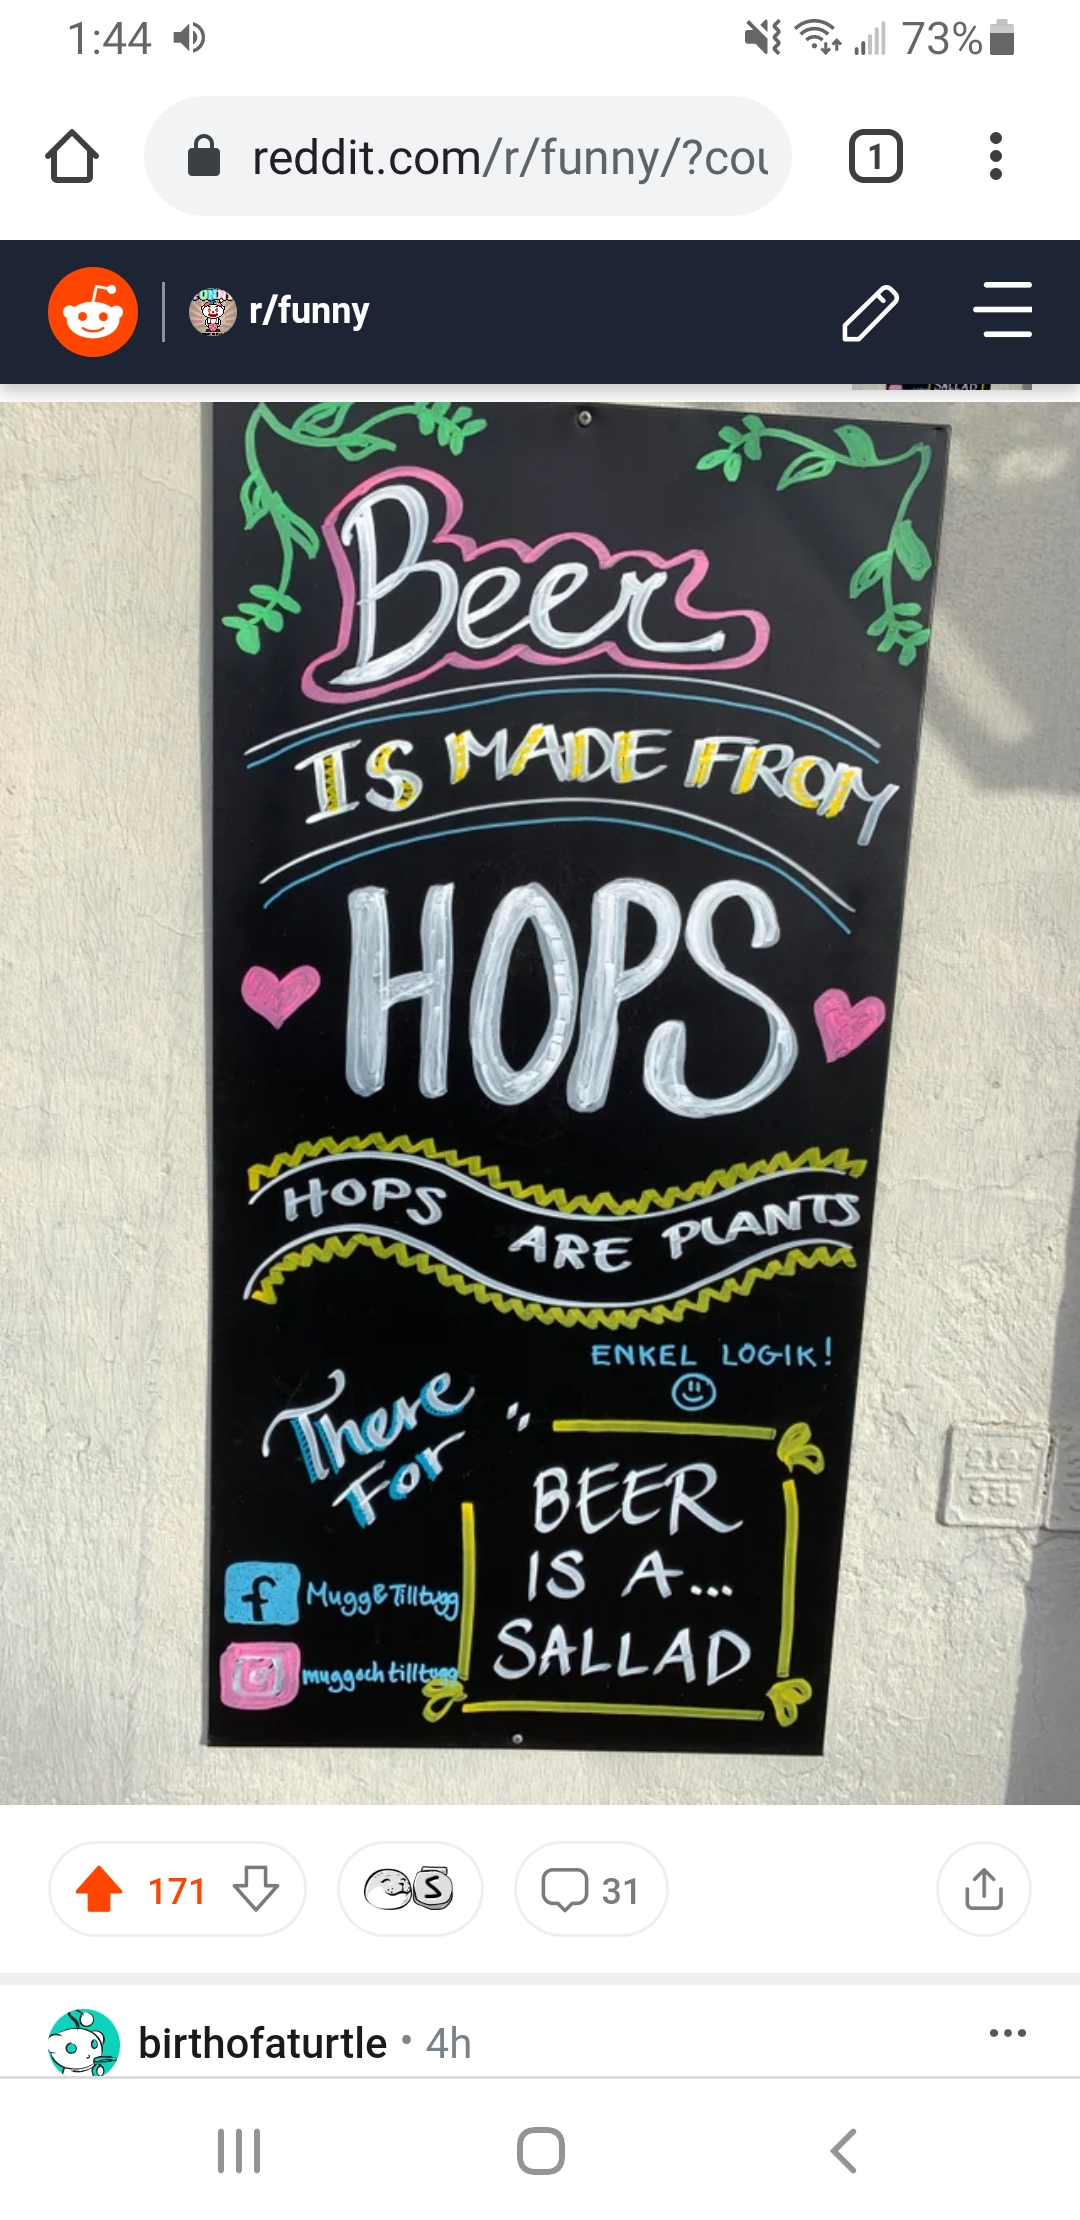 1:44
73%
reddit.com/r/funny/?cou
1
r/funny
Beer
IS MADE FROM
HOPS
HOPS ARE PLANTS
ENKEL LOGIK!
There
For
BEER
IS A...
SALLAD
f Mugg&Tilltugg
muggochtilltugg
171
S
31
birthofaturtle • 4h